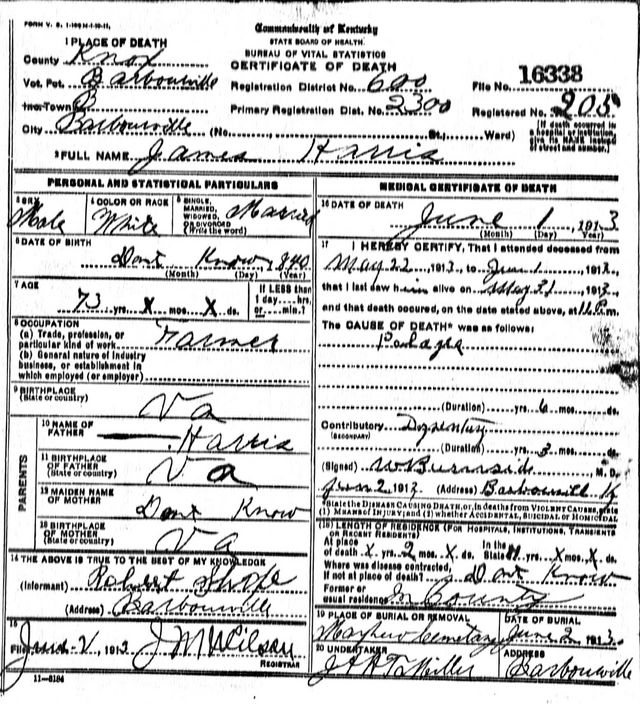 FORM V. S. 1-
Commonwealth of Kentucky
STATE BOARD OF HEALTH.
BUREAU OF VITAL STATISTICS
CERTIFICATE OF DEATH
1 PLACE OF DEATH
County Knox
Vot. Pct. Barbourville
Inc. Town B
City Barbourville (No. St., Ward)
Registration District No. 600
Primary Registration Dist. No. 2300
File No. 16338
Registered No. 205
(If death occurred in a hospital or institution, give its NAME instead of street and number.)
2 FULL NAME James Harris
PERSONAL AND STATISTICAL PARTICULARS
3 SEX Male
4 COLOR OR RACE White
5 SINGLE, MARRIED, WIDOWED, OR DIVORCED (Write the word) Married
6 DATE OF BIRTH
Dont Know, 1840
(Month) (Day) (Year)
7 AGE
73 yrs. X mos. X ds.
If LESS than 1 day... hrs. or... min.?
8 OCCUPATION
(a) Trade, profession, or particular kind of work Farmer
(b) General nature of industry business, or establishment in which employed (or employer)
9 BIRTHPLACE
(State or country) Va
PARENTS
10 NAME OF FATHER Harris
11 BIRTHPLACE OF FATHER (State or country) Va
12 MAIDEN NAME OF MOTHER Dont Know
13 BIRTHPLACE OF MOTHER (State or country) Va
14 THE ABOVE IS TRUE TO THE BEST OF MY KNOWLEDGE
(Informant) Robert
(Address) Barbourville
15
Filed Jun 2, 1913 J M Wilson
REGISTRAR
11-6184
MEDICAL CERTIFICATE OF DEATH
16 DATE OF DEATH
June 1, 1913
(Month) (Day) (Year)
17 I HEREBY CERTIFY, That I attended deceased from
May 22, 1913, to June 1 1913,
that I last saw him alive on May 31 1913,
and that death occured, on the date stated above, at 11 P.m.
The CAUSE OF DEATH* was as follows:
Polagra
(Duration) yrs. 6 mos. ds.
Contributory Dysentary
(SECONDARY)
(Duration) yrs. 3 mos. ds.
(Signed) W Burnside M. D.
Jun 2 1913 (Address) Barbourvill Ky
*State the DISEASE CAUSING DEATH, or, in deaths from VIOLENT CAUSES, state (1) MEANS OF INJURY; and (2) whether ACCIDENTAL, SUICIDAL OR HOMICIDAL
18 LENGTH OF RESIDENCE (FOR HOSPITALS, INSTITUTIONS, TRANSIENTS OR RECENT RESIDENTS)
At place of death X yrs. 9 mos. X ds. In the State yrs. X mos. X ds.
Where was disease contracted, If not at place of death? Dont Know
Former or usual residence In County
19 PLACE OF BURIAL OR REMOVAL
Mayhew Cemetary
DATE OF BURIAL
June 2 1913.
20 UNDERTAKER
Miller
ADDRESS
Barbourville